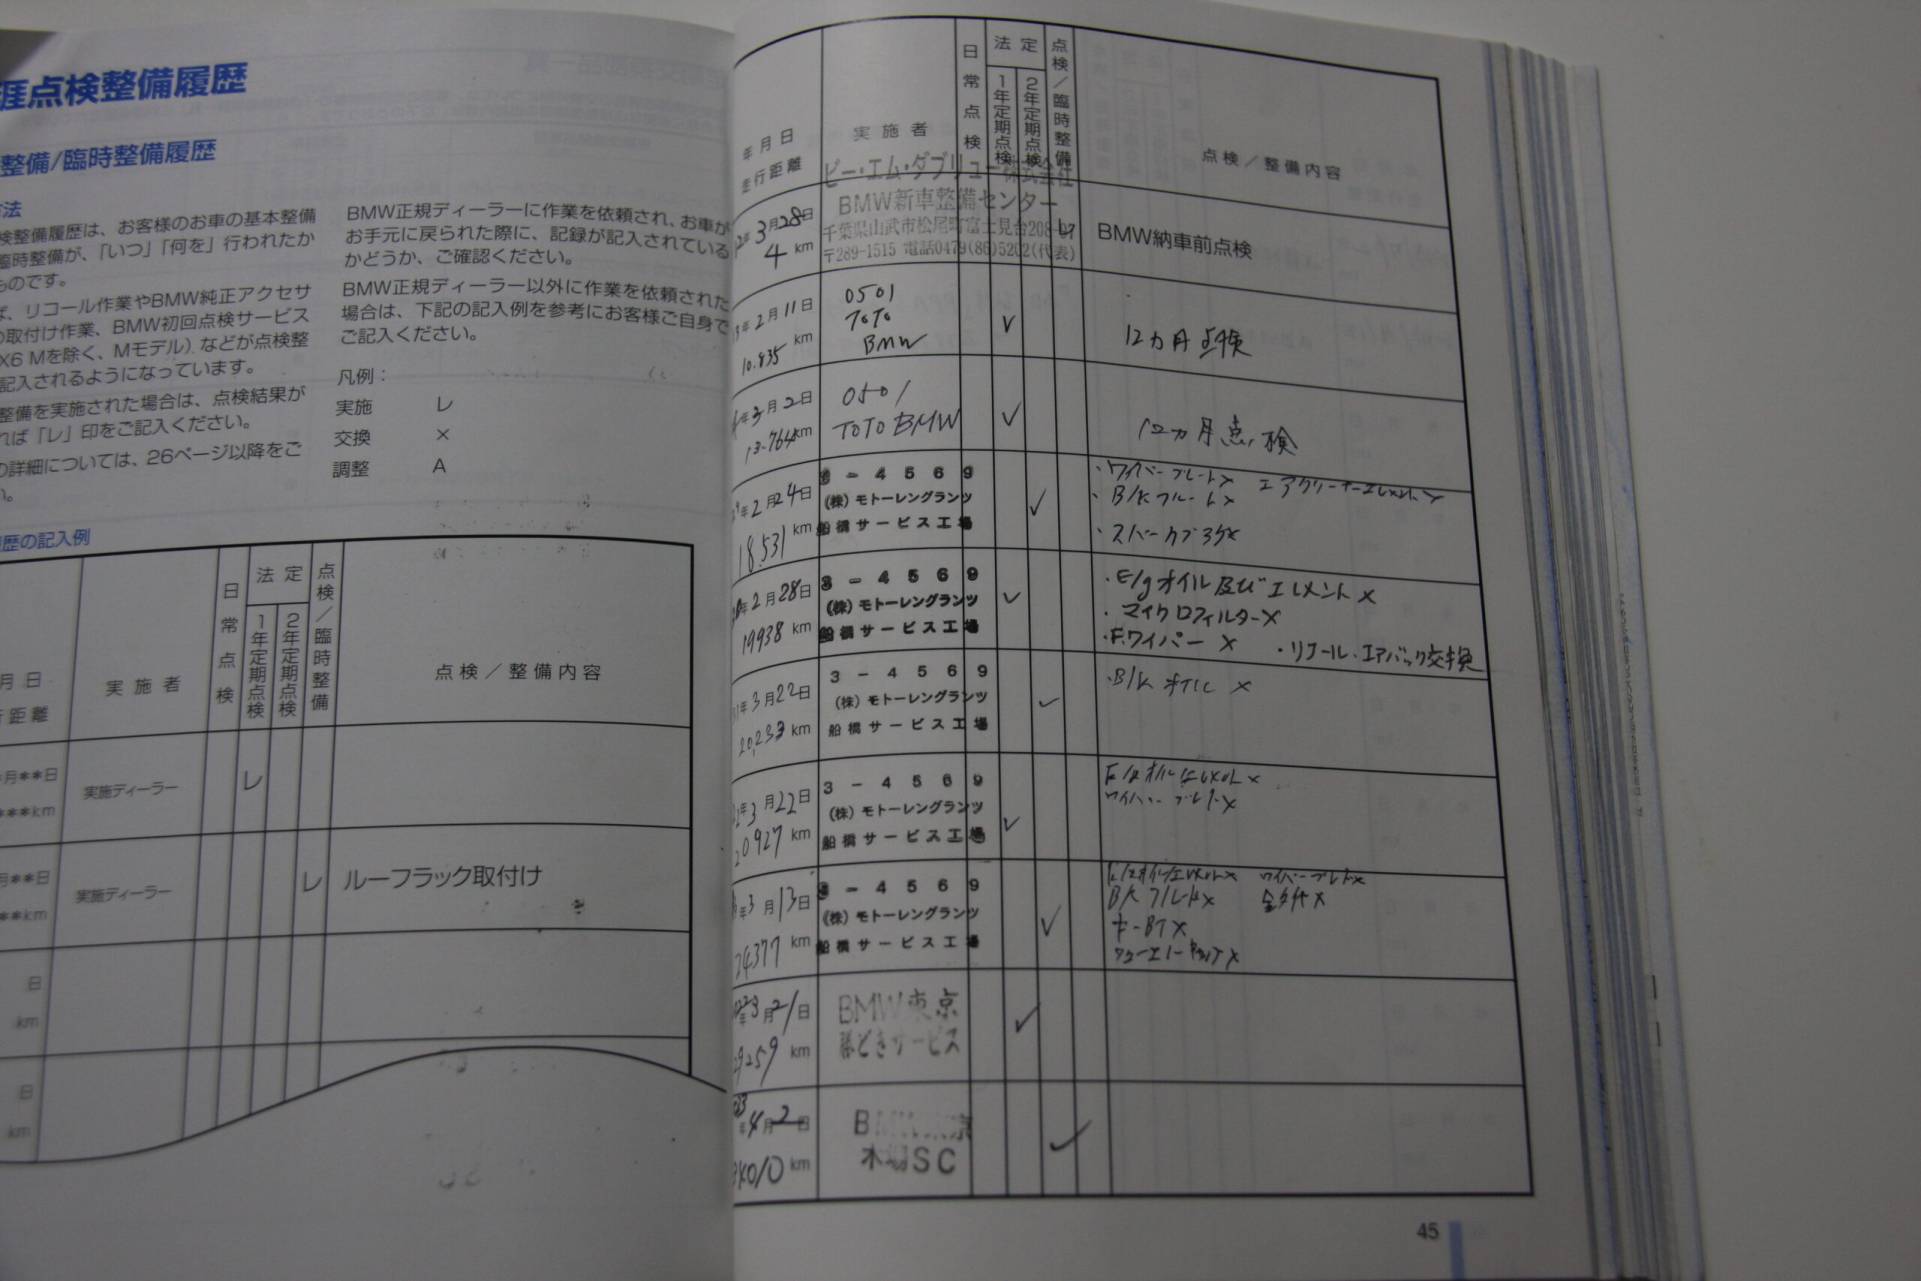 涯点検整備履歴
整備/臨時整備履歴
法
検整備履歴は、お客様のお車の基本整備
臨時整備が、「いつ」「何を」行われたか
ものです。
ば、リコール作業やBMW純正アクセサ
の取付け作業、BMW初回点検サービス
X6 Mを除く、Mモデル)などが点検整
記入されるようになっています。
整備を実施された場合は、点検結果が
れば「レ」印をご記入ください。
の詳細については、26ページ以降をご
い。
BMW正規ディーラーに作業を依頼され、お車が
お手元に戻られた際に、記録が記入されている
かどうか、ご確認ください。
BMW正規ディーラー以外に作業を依頼された
場合は、下記の記入例を参考にお客様ご自身で
ご記入ください。
凡例：
実施 レ
交換 ×
調整 A
歴の記入例
月日
行距離
実施者
日常点検
法定
1年定期点検
2年定期点検
点検/臨時整備
点検/整備内容
月**日
***km
実施ディーラー
レ
月**日
**km
実施ディーラー
レ
ルーフラック取付け
日
km
日
km
年月日
走行距離
実施者
日常点検
法定
1年定期点検
2年定期点検
点検/臨時整備
点検/整備内容
年3月28日
4 km
ビー・エム・ダブリュー株式会社
BMW新車整備センター
千葉県山武市松尾町富士見台208-
〒289-1515 電話0479(86)5202(代表)
BMW納車前点検
年2月11日
10.835 km
0501
TOTO
BMW
12カ月点検
年3月2日
13.764km
0501
TOTO BMW
12カ月点検
年2月24日
18.531 km
3-4569
(株)モトーレングランツ
船橋サービス工場
・ワイパーブレード× エアクリーナーエレメント×
・B/Kフルード×
・スパークプラグ×
年2月28日
19938 km
3-4569
(株)モトーレングランツ
船橋サービス工場
・E/gオイル及びエレメント×
・マイクロフィルター×
・F.ワイパー × ・リコール・エアバック交換
年3月22日
20,233 km
3-4569
(株)モトーレングランツ
船橋サービス工場
・B/K オイル ×
年3月22日
20927 km
3-4569
(株)モトーレングランツ
船橋サービス工場
ワイパーブレード×
年3月13日
24377 km
3-4569
(株)モトーレングランツ
船橋サービス工場
ワイパーブレード×
B/Kフルード×
キーBT×
年3月21日
29259 km
BMW東京
勝どきサービス
年4月2日
km
BMW東京
木場SC
45